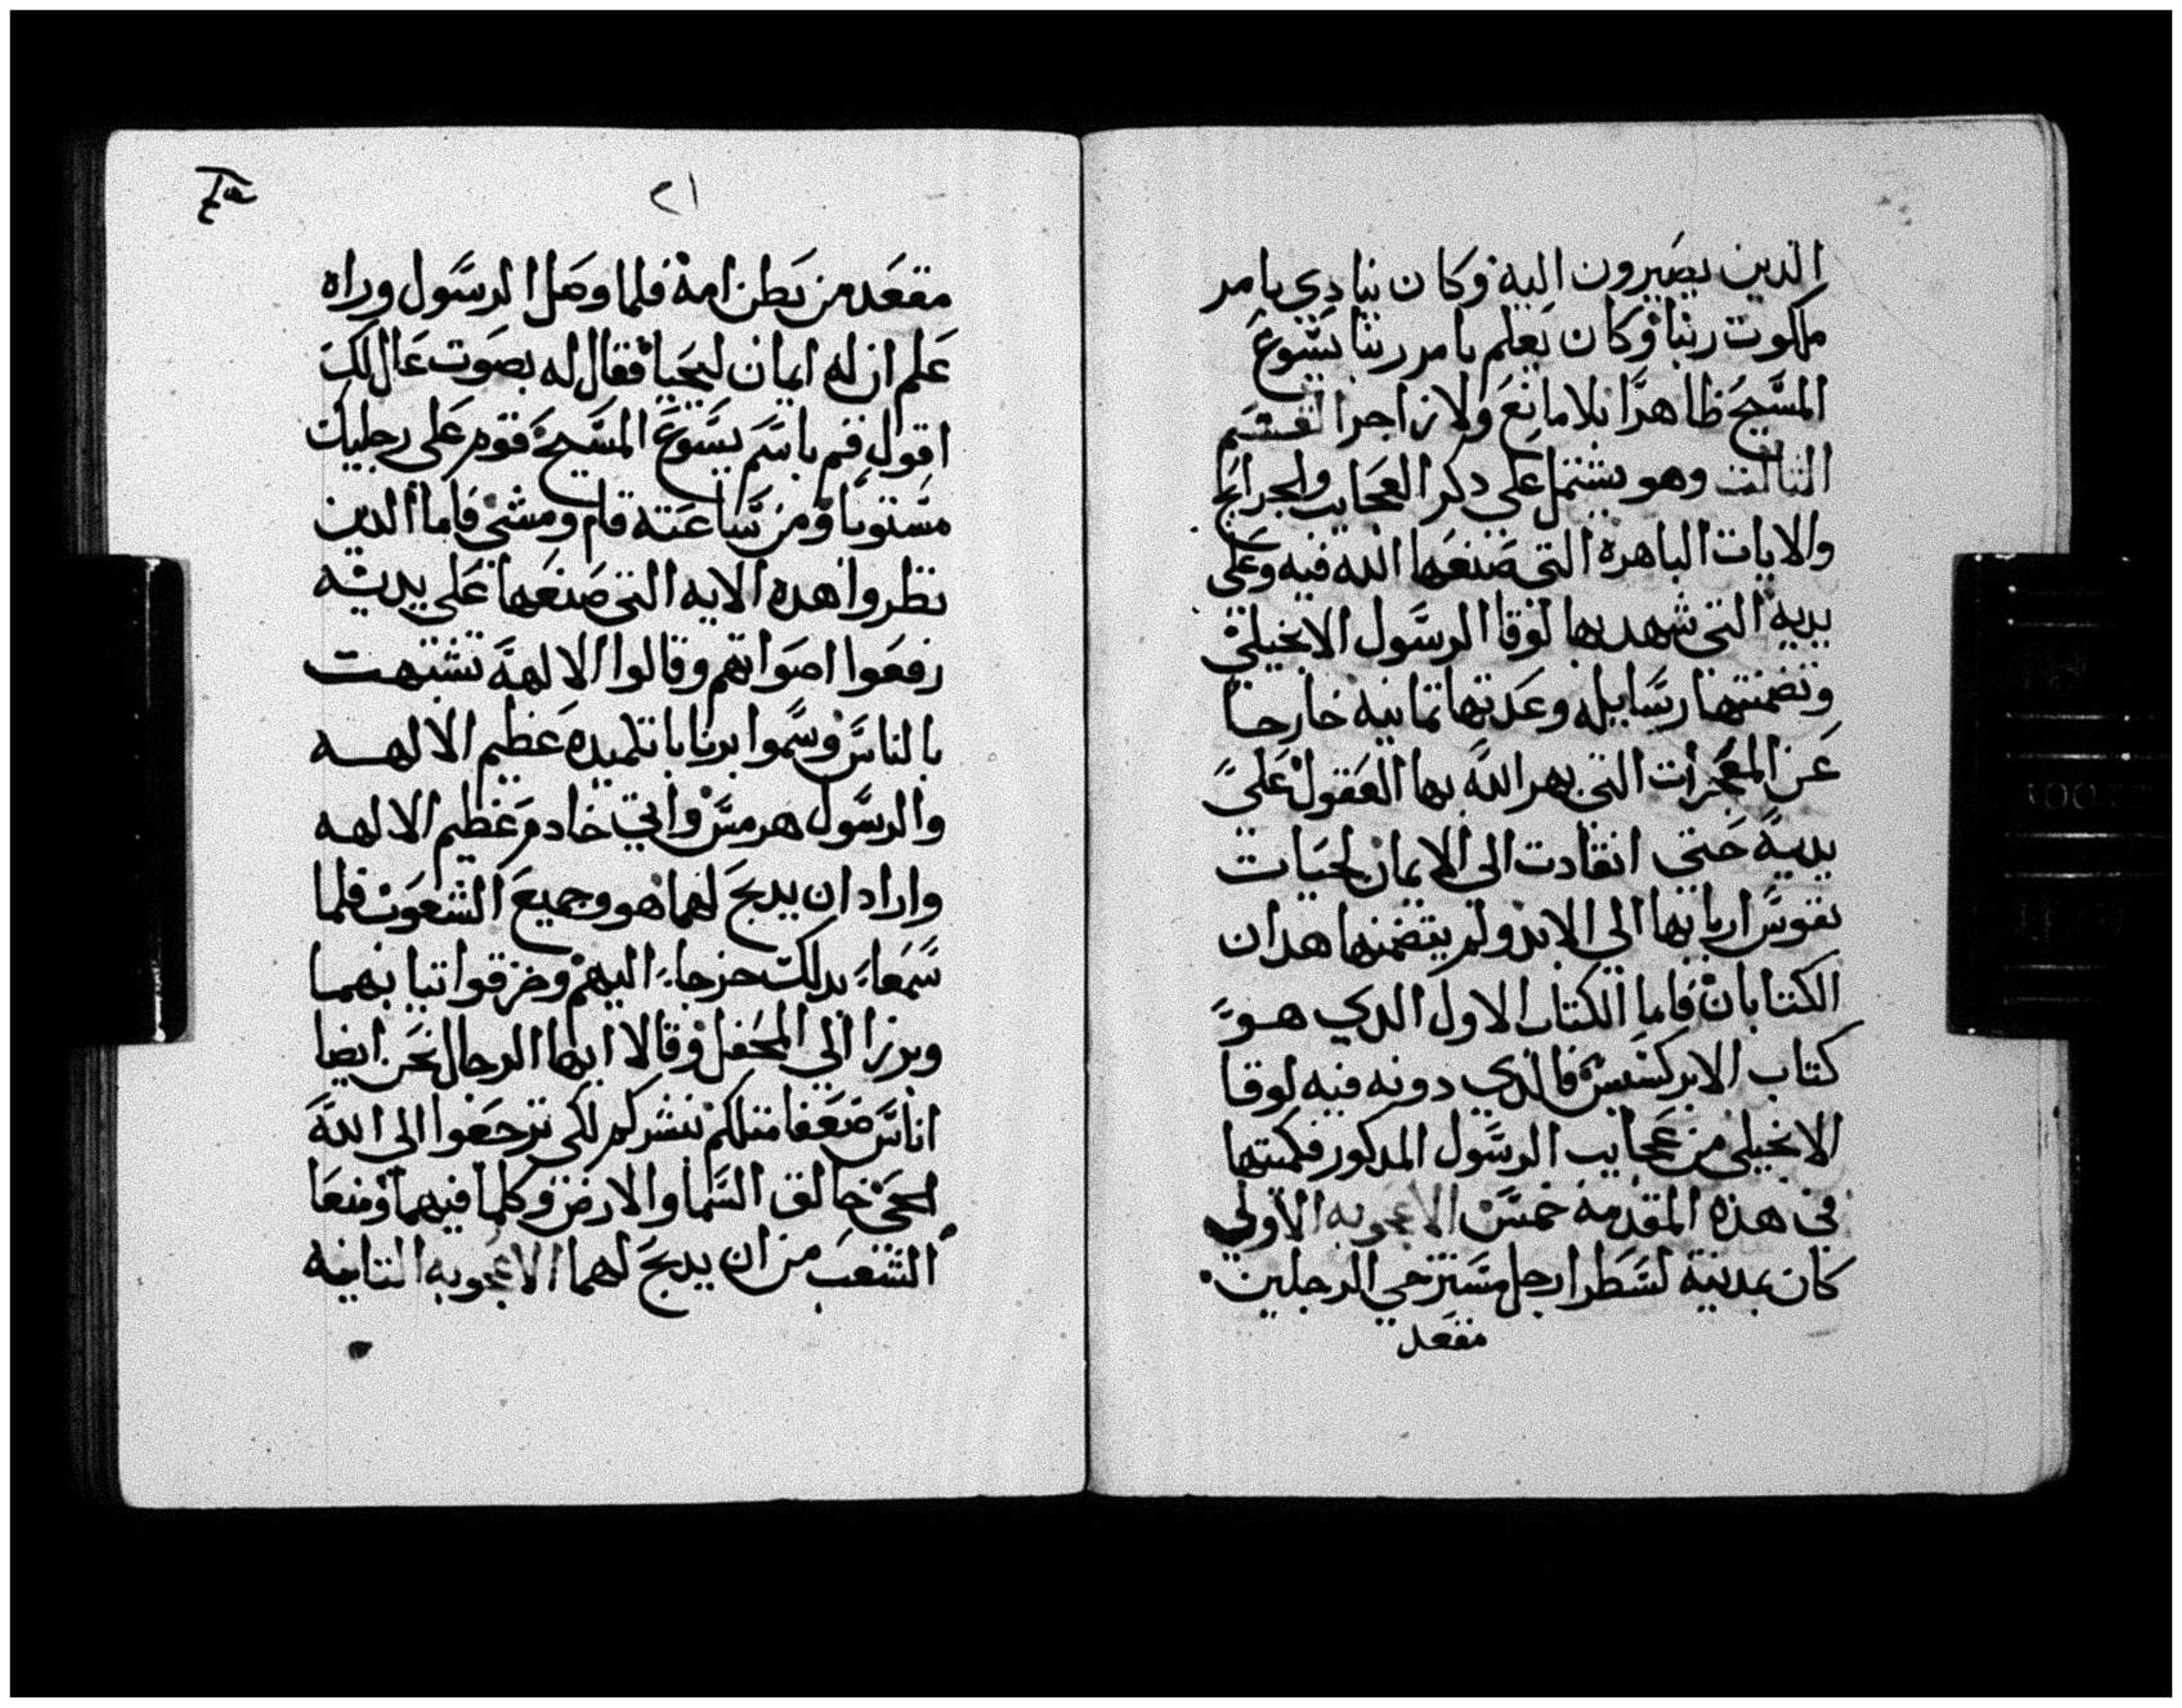 الدين يصيرون اليه وكان ينادي بامر
ملكوت ربنا وكان يعلم بامر ربنا يسوع
المسيح ظاهرا بلا مانع ولا زاجر القسم
الثالث وهو يشتمل على دكر العجايب والجرايح
والايات الباهرة التي صنعها الله فيه وعلى
يديه التي شهد بها لوقا الرسول الانجيلي
وتضمنتها رسايله وعدتها تمانيه خارجا
عن المعجزات التي بهر الله بها العقول على
يديه حتى انقادت الى الايمان لحيات
نفوس اربابها الى الابد ولم يتضمنها هدان
الكتابان فاما الكتاب الاول الدي هو
كتاب الابركسيس فالدي دونه فيه لوقا
الانجيلي من عجايب الرسول المدكور فكميتها
في هذه المقدمة خمس الاعجوبه الاولي
كان بمدينة لسطرا رجل مسترخي الرجلين
مقعد
٢١
مقعد من بطن امه فلما وصل الرسول وراه
علم ان له ايمان ليحيا فقال له بصوت عال لك
اقول قم باسم يسوع المسيح فقوم على رجليك
مستويا ومن ساعته قام ومشي فاما الدين
نظروا هده الايه التي صنعها على يديه
رفعوا اصواتهم وقالوا الالهة تشبهت
بالناس وسموا برنابا تلميده عظيم الالهه
والرسول هرمس واتي خادم عظيم الالهه
واراد ان يدبح لهما هو وجميع الشعوب فلما
سمعا بدلك خرجا اليهم وخرقوا تيابهما
وبرزا الي المحفل وقالا ايها الرجال نحن ايضا
اناس ضعفا متلكم نبشركم لكي ترجعوا الى الله
الحي خالق السما والارض وكلما فيهما ومنعا
الشعب من ان يدبح لهما الاعجوبه التانيه